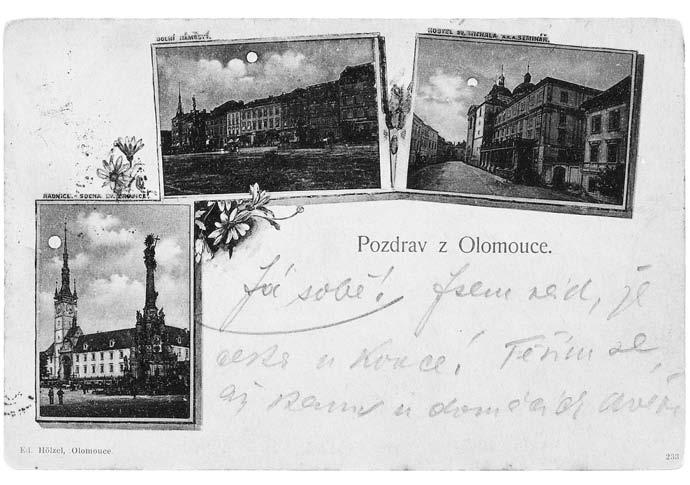 DOLNÍ NÁMĚSTÍ.
KOSTEL SV. MICHALA A K.A. SEMINÁŘ.
RADNICE. - SOCHA SV. TROJICE.
Pozdrav z Olomouce.
Já sobě! Jsem rád, je
u konce! Těším se,
až u domácích
Ed. Hölzel, Olomouce.
233